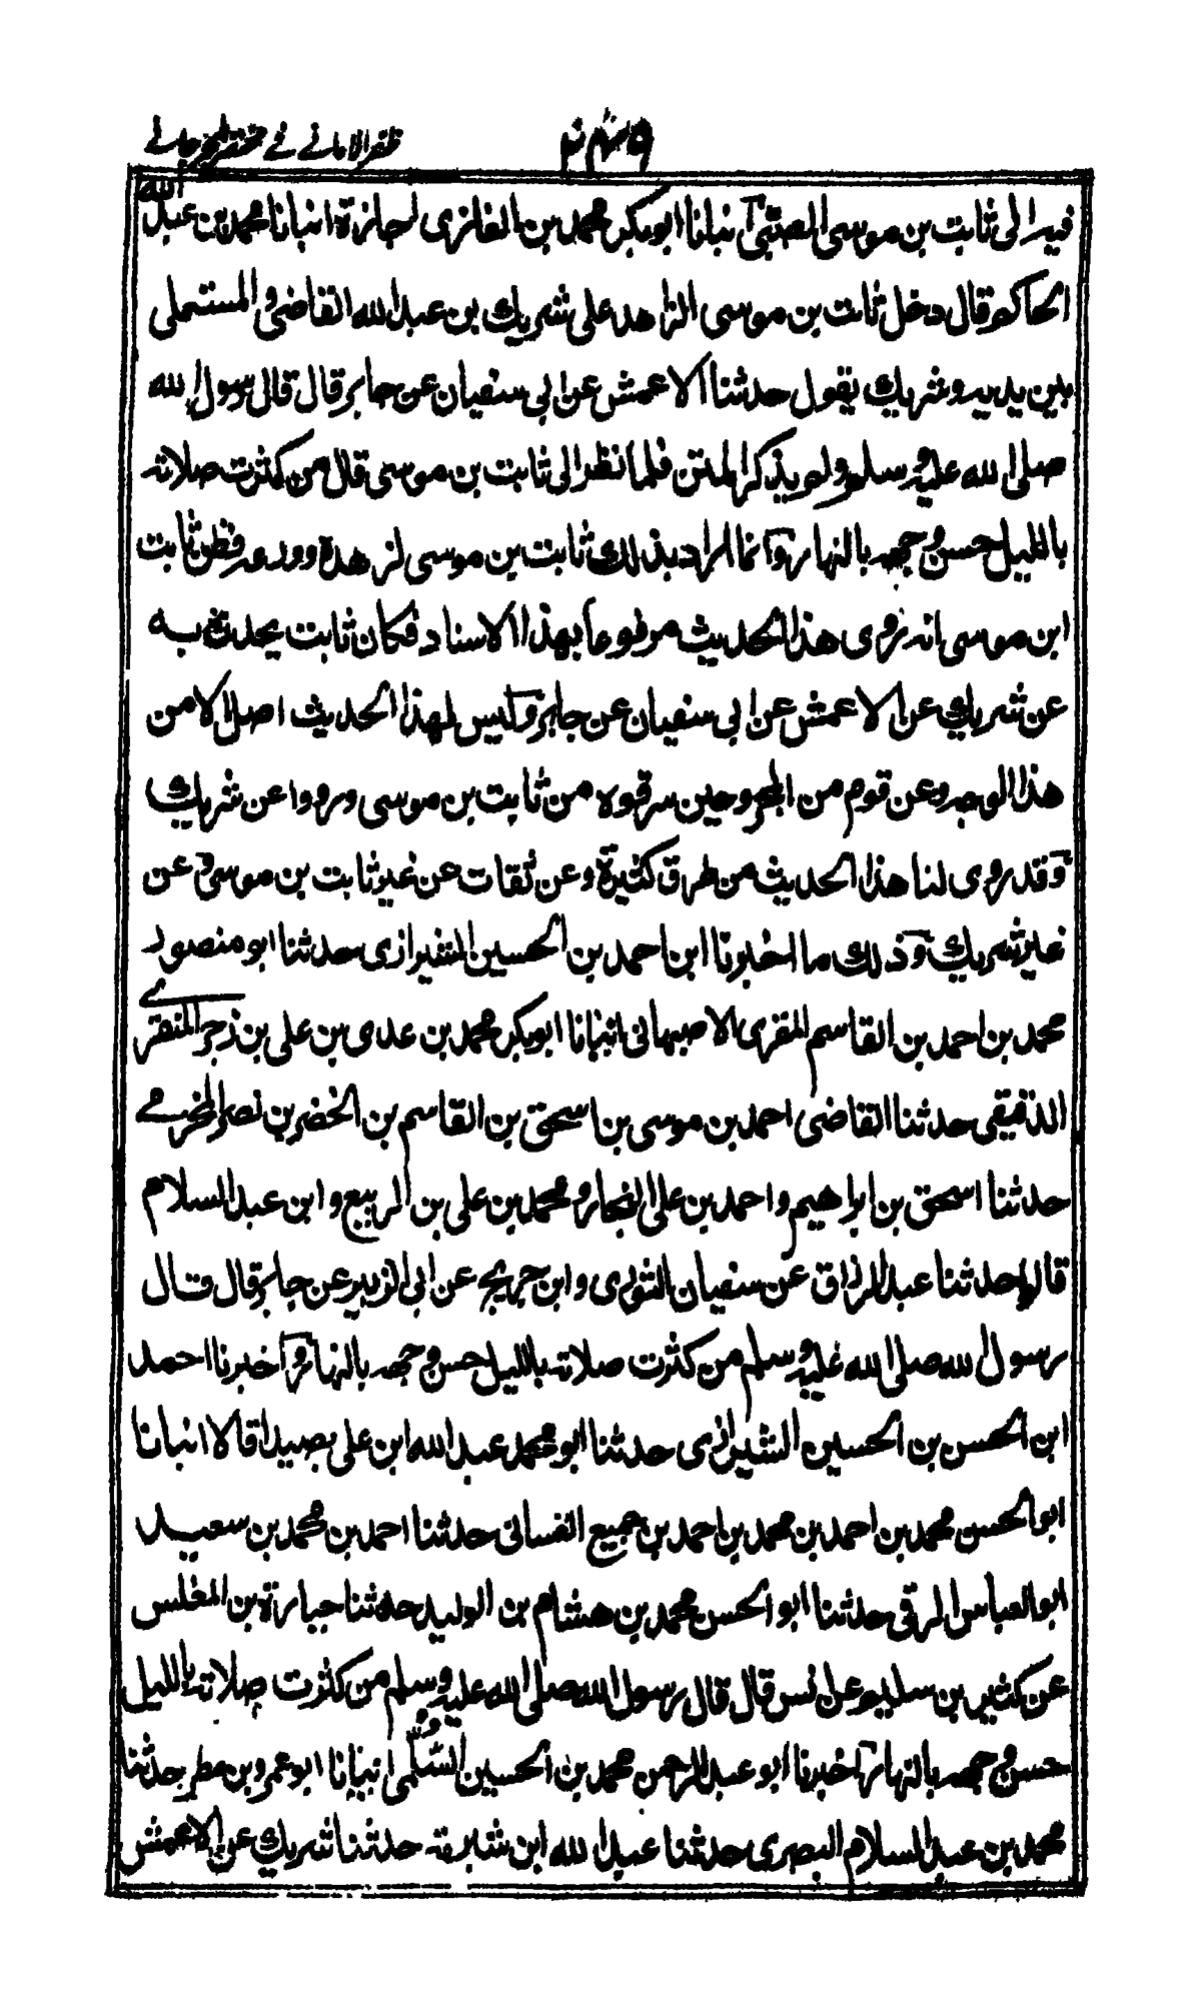 ظفر الاماني في مختصر الجرجاني
فيه الى ثابت بن موسى الضبي انبانا ابو بكر محمد بن الفازى اجازة انبانا محمد بن عبد الله
الحاكم قال دخل ثابت بن موسى الزاهد على شريك بن عبد الله القاضى والمستملى
بين يديه وشريك يقول حدثنا الاعمش عن ابى سفيان عن جابر قال قال رسول الله
صلى الله عليه وسلم ولم يذكر المتن فلما نظر الى ثابت بن موسى قال من كثرت صلاته
بالليل حسن وجهه بالنهار وانما اراد بذلك ثابت بن موسى لزهده وورعه فظن ثابت
ابن موسى انه روى هذا الحديث مرفوعا بهذا الاسناد فكان ثابت يحدث به
عن شريك عن الاعمش عن ابى سفيان عن جابر وليس لهذا الحديث اصل الا من
هذا الوجه وعن قوم من المجروحين سرقوه من ثابت بن موسى ورووا عن شريك
وقد روى لنا هذا الحديث من طرق كثيرة وعن ثقات عن غير ثابت بن موسى وعن
غير شريك وذلك ما اخبرنا ابن احمد بن الحسين الشيرازى حدثنا ابو منصور
محمد بن احمد بن القاسم المقرى الاصبهانى انبانا ابو بكر محمد بن عدى بن على بن زجر المنقرى
الدقيقى حدثنا القاضى احمد بن موسى بن اسحق بن القاسم بن الخضر بن نصر المخرمي
حدثنا اسحق بن ابراهيم واحمد بن على الفجار ومحمد بن على بن الربيع وابن عبد السلام
قالوا حدثنا عبد الرزاق عن سفيان الثورى وابن جريج عن ابى الزبير عن جابر قال قال
رسول الله صلى الله عليه وسلم من كثرت صلاته بالليل حسن وجهه بالنهار واخبرنا احمد
ابن الحسن بن الحسين الشيرازى حدثنا ابو محمد عبد الله ابن على بصيدا قالا انبانا
ابو الحسن محمد بن احمد بن محمد بن احمد بن جميع الغسانى حدثنا احمد بن محمد بن سعيد
ابو العباس الرقى حدثنا ابو الحسن محمد بن هشام بن الوليد حدثنا جبارة بن المغلس
عن كثير بن سليم عن انس قال قال رسول الله صلى الله عليه وسلم من كثرت صلاته بالليل
حسن وجهه بالنهار اخبرنا ابو عبد الرحمن محمد بن الحسين السُّلَمى انبانا ابو عمرو بن مطر حدثنا
محمد بن عبد السلام البصرى حدثنا عبد الله ابن شبرمة حدثنا شريك عن الاعمش